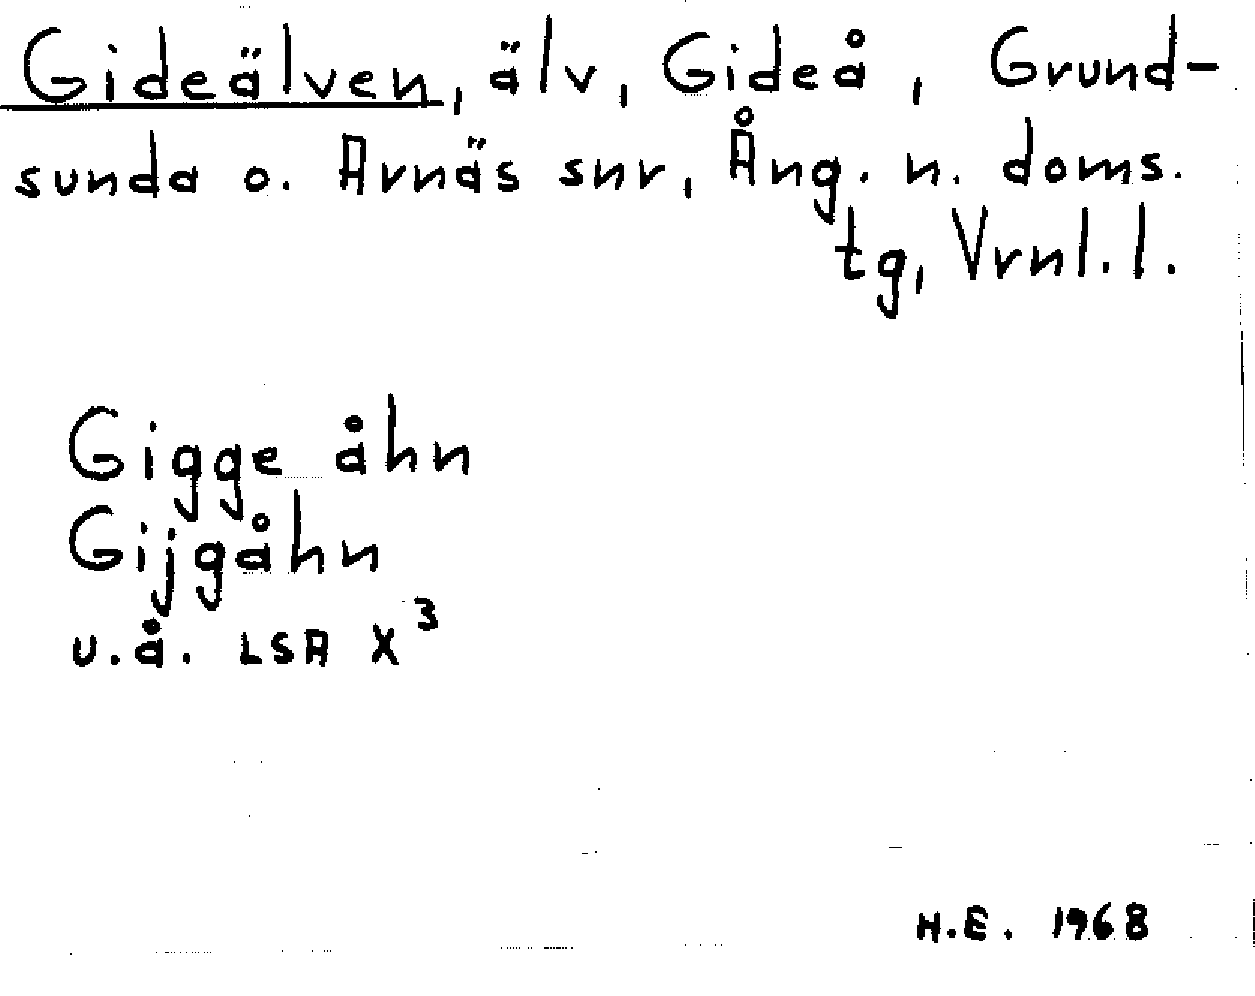 Gideälven, älv, Gideå, Grund-
sunda o. Arnäs snr, Ång. n. doms.
tg, Vrnl. l.
Gigge åhn
Gijgåhn
u.å. LSA X³
H.E. 1968